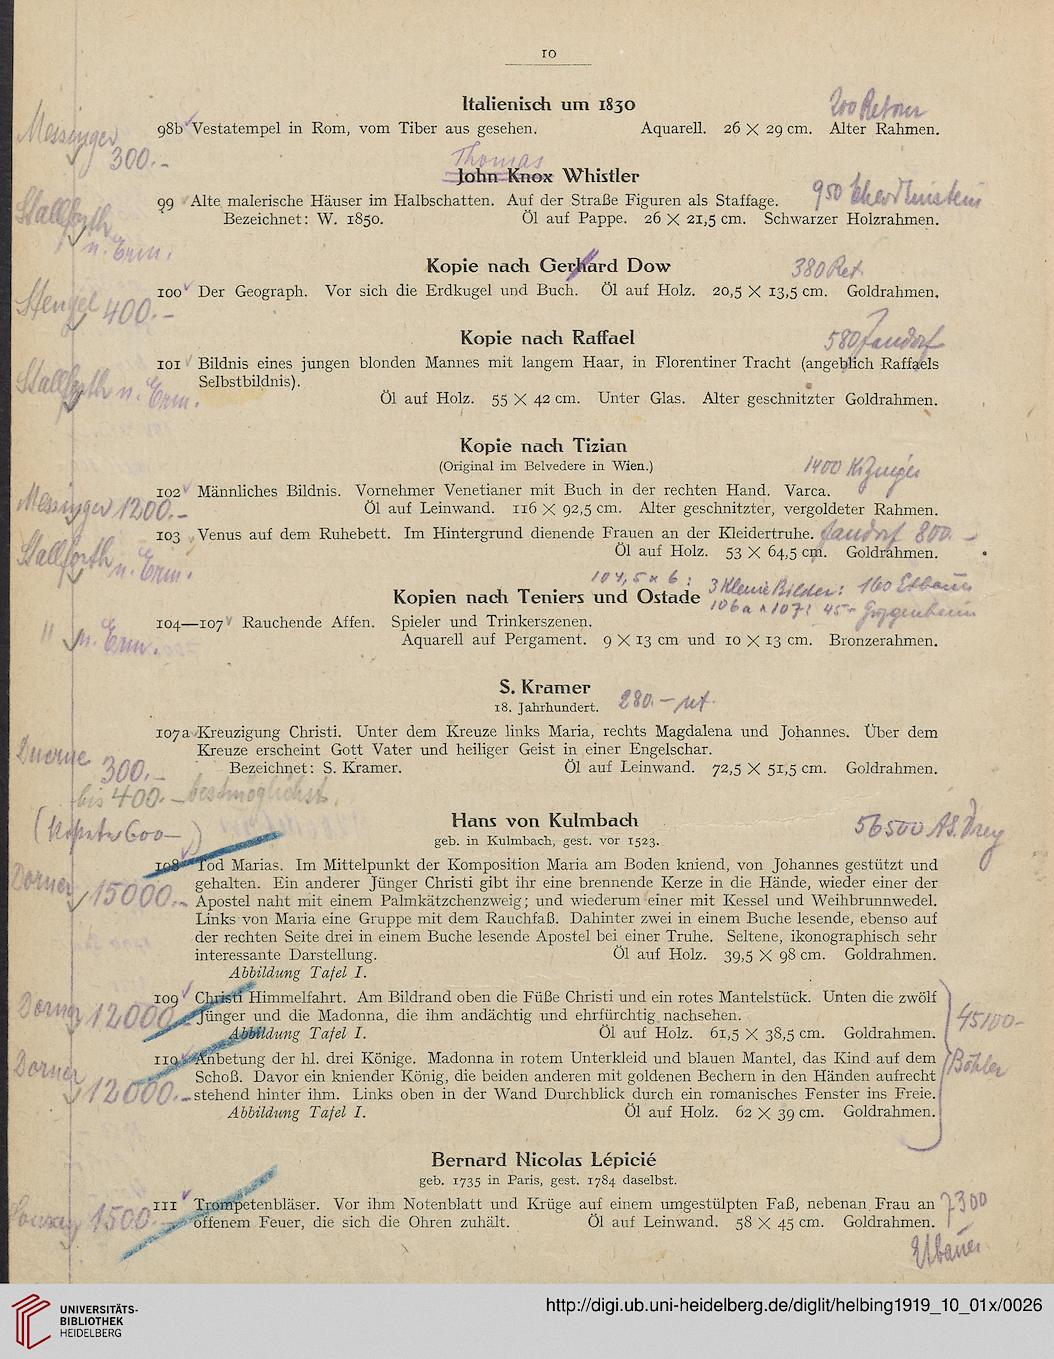 10
Italienisch um 1830
200 Retour
Messinger
98b Vestatempel in Rom, vom Tiber aus gesehen. Aquarell. 26 × 29 cm. Alter Rahmen.
300.-
Thomas
John Knox Whistler
950
Stallforth
99 Alte malerische Häuser im Halbschatten. Auf der Straße Figuren als Staffage.
Bezeichnet: W. 1850. Öl auf Pappe. 26 × 21,5 cm. Schwarzer Holzrahmen.
n. Erm.
Kopie nach Gerhard Dow
380 Ret.
Stengel 400.-
100 Der Geograph. Vor sich die Erdkugel und Buch. Öl auf Holz. 20,5 × 13,5 cm. Goldrahmen.
Kopie nach Raffael
580 Jandorf
101 Bildnis eines jungen blonden Mannes mit langem Haar, in Florentiner Tracht (angeblich Raffaels
Selbstbildnis).
Stallforth n. Erm.
Öl auf Holz. 55 × 42 cm. Unter Glas. Alter geschnitzter Goldrahmen.
Kopie nach Tizian
(Original im Belvedere in Wien.)
1400
102 Männliches Bildnis. Vornehmer Venetianer mit Buch in der rechten Hand. Varca.
Messinger 1200.-
Öl auf Leinwand. 116 × 92,5 cm. Alter geschnitzter, vergoldeter Rahmen.
103 Venus auf dem Ruhebett. Im Hintergrund dienende Frauen an der Kleidertruhe. Jandorf 800.-
Stallforth n. Erm.
Öl auf Holz. 53 × 64,5 cm. Goldrahmen.
104, 5 u 6: 3 Kleine Bilder: 160 Etbauer
Kopien nach Teniers und Ostade
106a u 107: 45.- Guggenheim
104—107 Rauchende Affen. Spieler und Trinkerszenen.
" n. Erm.
Aquarell auf Pergament. 9 × 13 cm und 10 × 13 cm. Bronzerahmen.
S. Kramer
18. Jahrhundert.
280.- ret.
107a Kreuzigung Christi. Unter dem Kreuze links Maria, rechts Magdalena und Johannes. Über dem
Kreuze erscheint Gott Vater und heiliger Geist in einer Engelschar.
300.-
Bezeichnet: S. Kramer. Öl auf Leinwand. 72,5 × 51,5 cm. Goldrahmen.
bis 400.- bestmöglichst.
600—)
Hans von Kulmbach
56500 A.S. Drey
geb. in Kulmbach, gest. vor 1523.
108 Tod Marias. Im Mittelpunkt der Komposition Maria am Boden kniend, von Johannes gestützt und
Dorner 15000.-
gehalten. Ein anderer Jünger Christi gibt ihr eine brennende Kerze in die Hände, wieder einer der
Apostel naht mit einem Palmkätzchenzweig; und wiederum einer mit Kessel und Weihbrunnwedel.
Links von Maria eine Gruppe mit dem Rauchfaß. Dahinter zwei in einem Buche lesende, ebenso auf
der rechten Seite drei in einem Buche lesende Apostel bei einer Truhe. Seltene, ikonographisch sehr
interessante Darstellung. Öl auf Holz. 39,5 × 98 cm. Goldrahmen.
Abbildung Tafel I.
Dorner 12000.-
109 Christi Himmelfahrt. Am Bildrand oben die Füße Christi und ein rotes Mantelstück. Unten die zwölf
Jünger und die Madonna, die ihm andächtig und ehrfürchtig nachsehen.
Abbildung Tafel I. Öl auf Holz. 61,5 × 38,5 cm. Goldrahmen.
45100-
Böhler
Dorner 12000.-
110 Anbetung der hl. drei Könige. Madonna in rotem Unterkleid und blauen Mantel, das Kind auf dem
Schoß. Davor ein kniender König, die beiden anderen mit goldenen Bechern in den Händen aufrecht
stehend hinter ihm. Links oben in der Wand Durchblick durch ein romanisches Fenster ins Freie.
Abbildung Tafel I. Öl auf Holz. 62 × 39 cm. Goldrahmen.
Bernard Nicolas Lépicié
geb. 1735 in Paris, gest. 1784 daselbst.
1500.-
111 Trompetenbläser. Vor ihm Notenblatt und Krüge auf einem umgestülpten Faß, nebenan Frau an
offenem Feuer, die sich die Ohren zuhält. Öl auf Leinwand. 58 × 45 cm. Goldrahmen.
7300
Etbauer
UNIVERSITÄTS-
BIBLIOTHEK
HEIDELBERG
http://digi.ub.uni-heidelberg.de/diglit/helbing1919_10_01x/0026